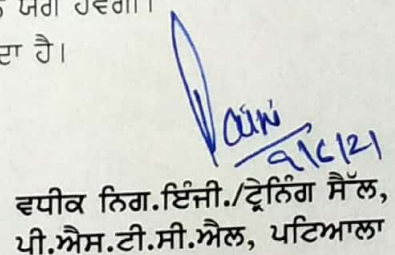 ਯੋਗ ਹੋਵੇਗੀ।
ਦਾ ਹੈ।
9/6/21
ਵਧੀਕ ਨਿਗ.ਇੰਜੀ./ਟ੍ਰੇਨਿੰਗ ਸੈੱਲ,
ਪੀ.ਐਸ.ਟੀ.ਸੀ.ਐਲ, ਪਟਿਆਲਾ